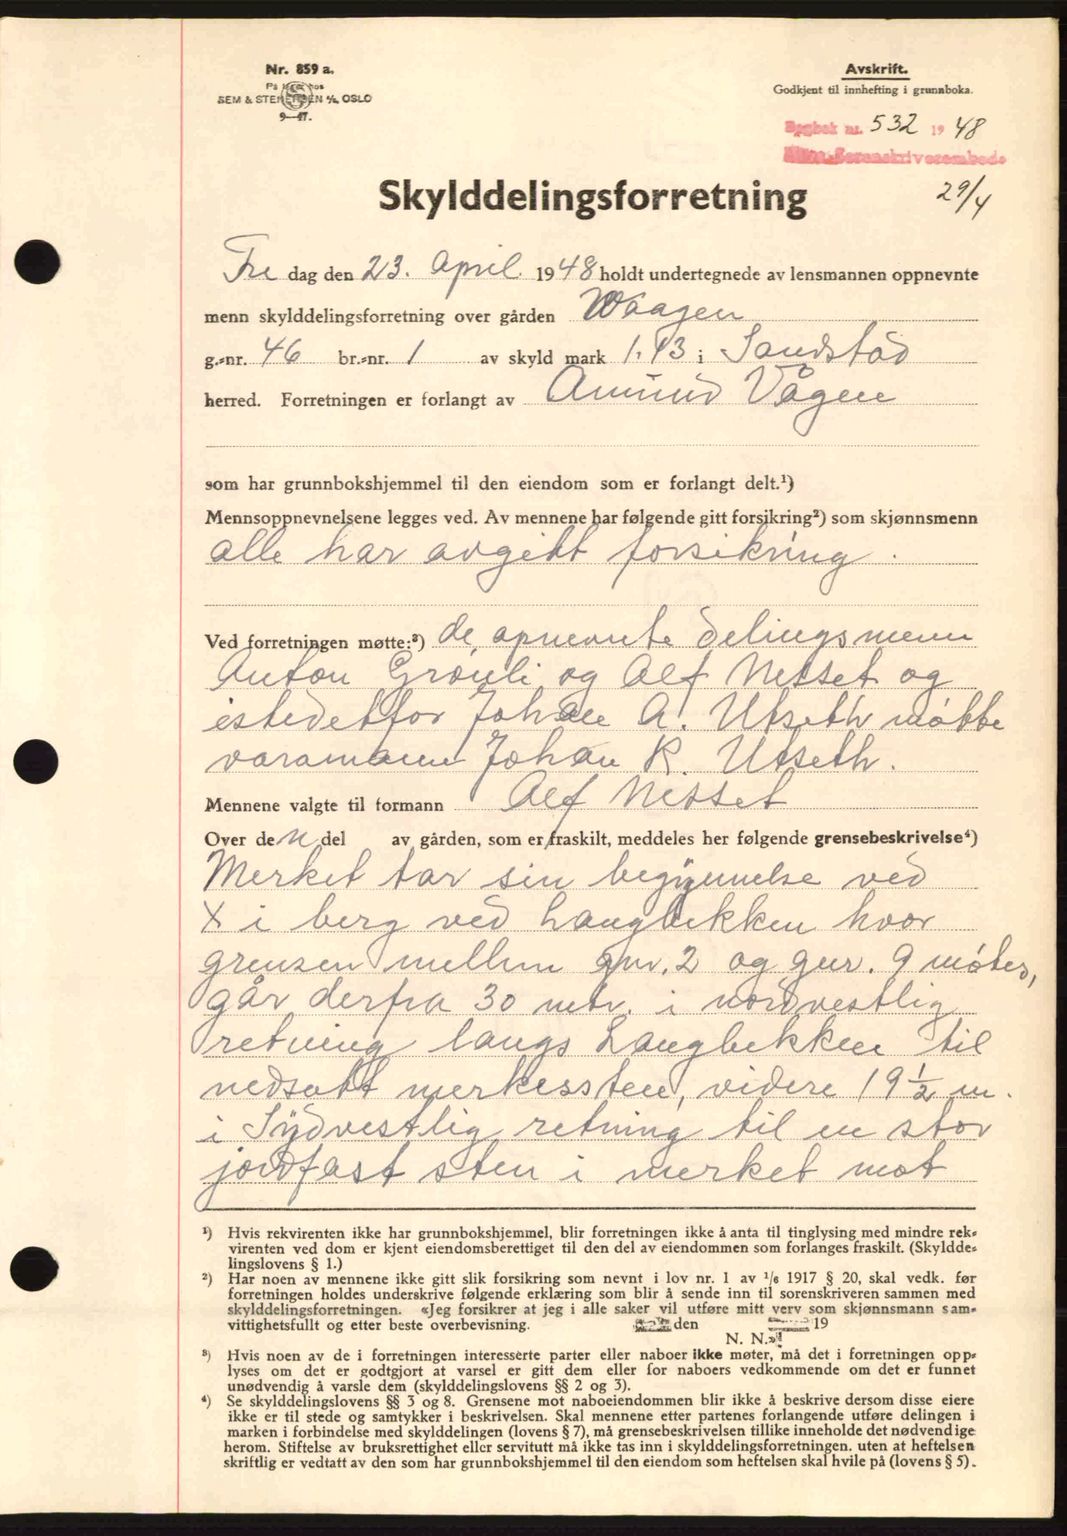 Nr. 859 a.
På lager hos
SEM & STENERSEN A/S, OSLO
9—47.
Avskrift.
Godkjent til innhefting i grunnboka.
Dagbok nr. 532 19 48
Sorenskriverembede
29/4
Skylddelingsforretning
Fre dag den 23. april 1948 holdt undertegnede av lensmannen oppnevnte
menn skylddelingsforretning over gården Waagen
g.-nr. 46 br.-nr. 1 av skyld mark 1.13 i Sandstad
herred. Forretningen er forlangt av Amund Vågen
som har grunnbokshjemmel til den eiendom som er forlangt delt.¹)
Mennsoppnevnelsene legges ved. Av mennene har følgende gitt forsikring²) som skjønnsmenn
alle har avgitt forsikring.
Ved forretningen møtte:³) de opnevnte delingsmenn
Anton Grønli og Alf Nesset og
istedetfor Johan A. Utseth møtte
varamann Johan K. Utseth.
Mennene valgte til formann Alf Nesset
Over den del av gården, som er fraskilt, meddeles her følgende grensebeskrivelse⁴)
Merket tar sin begynnelse ved
X i berg ved Langbekken hvor
grensen mellem gnr. 2 og gnr. 9 møtes,
går derfra 30 mtr. i nordvestlig
retning langs Langbekken til
nedsatt merkessten, videre 19 ½ m.
i Sydvestlig retning til en stor
jordfast sten i merket mot
¹) Hvis rekvirenten ikke har grunnbokshjemmel, blir forretningen ikke å anta til tinglysing med mindre rek-
virenten ved dom er kjent eiendomsberettiget til den del av eiendommen som forlanges fraskilt. (Skyldde-
lingslovens § 1.)
²) Har noen av mennene ikke gitt slik forsikring som nevnt i lov nr. 1 av 1/6 1917 § 20, skal vedk. før
forretningen holdes underskrive følgende erklæring som blir å sende inn til sorenskriveren sammen med
skylddelingsforretningen. «Jeg forsikrer at jeg i alle saker vil utføre mitt verv som skjønnsmann sam-
vittighetsfullt og etter beste overbevisning. den 19
N. N.»
³) Hvis noen av de i forretningen interesserte parter eller naboer ikke møter, må det i forretningen opp-
lyses om det er godtgjort at varsel er gitt dem eller for naboers vedkommende om det er funnet
unødvendig å varsle dem (skylddelingslovens §§ 2 og 3).
⁴) Se skylddelingslovens §§ 3 og 8. Grensene mot naboeiendommen blir ikke å beskrive dersom disse eiere
ikke er til stede og samtykker i beskrivelsen. Skal mennene etter partenes forlangende utføre delingen i
marken i forbindelse med skylddelingen (lovens § 7), må grensebeskrivelsen tillike inneholde det nødvendige
herom. Stiftelse av bruksrettighet eller servitutt må ikke tas inn i skylddelingsforretningen, uten at heftelsen
skriftlig er vedtatt av den som har grunnbokshjemmel til den eiendom som heftelsen skal hvile på (lovens § 5).